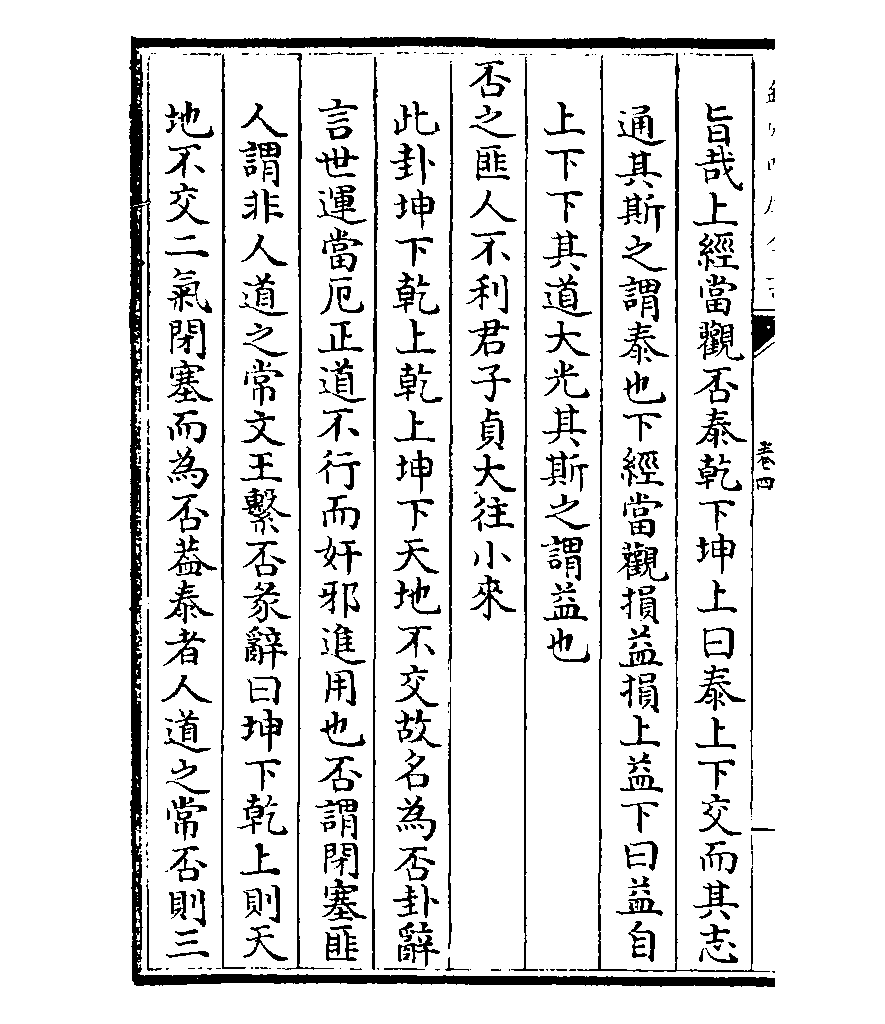 旨哉上經當觀否泰乾下坤上曰泰上下交而其志
通其斯之謂泰也下經當觀損益損上益下曰益自
上下下其道大光其斯之謂益也
否之匪人不利君子貞大往小來
此卦坤下乾上乾上坤下天地不交故名為否卦辭
言世運當厄正道不行而奸邪進用也否謂閉塞匪
人謂非人道之常文王繫否彖辭曰坤下乾上則天
地不交二氣閉塞而為否葢泰者人道之常否則三
卷四